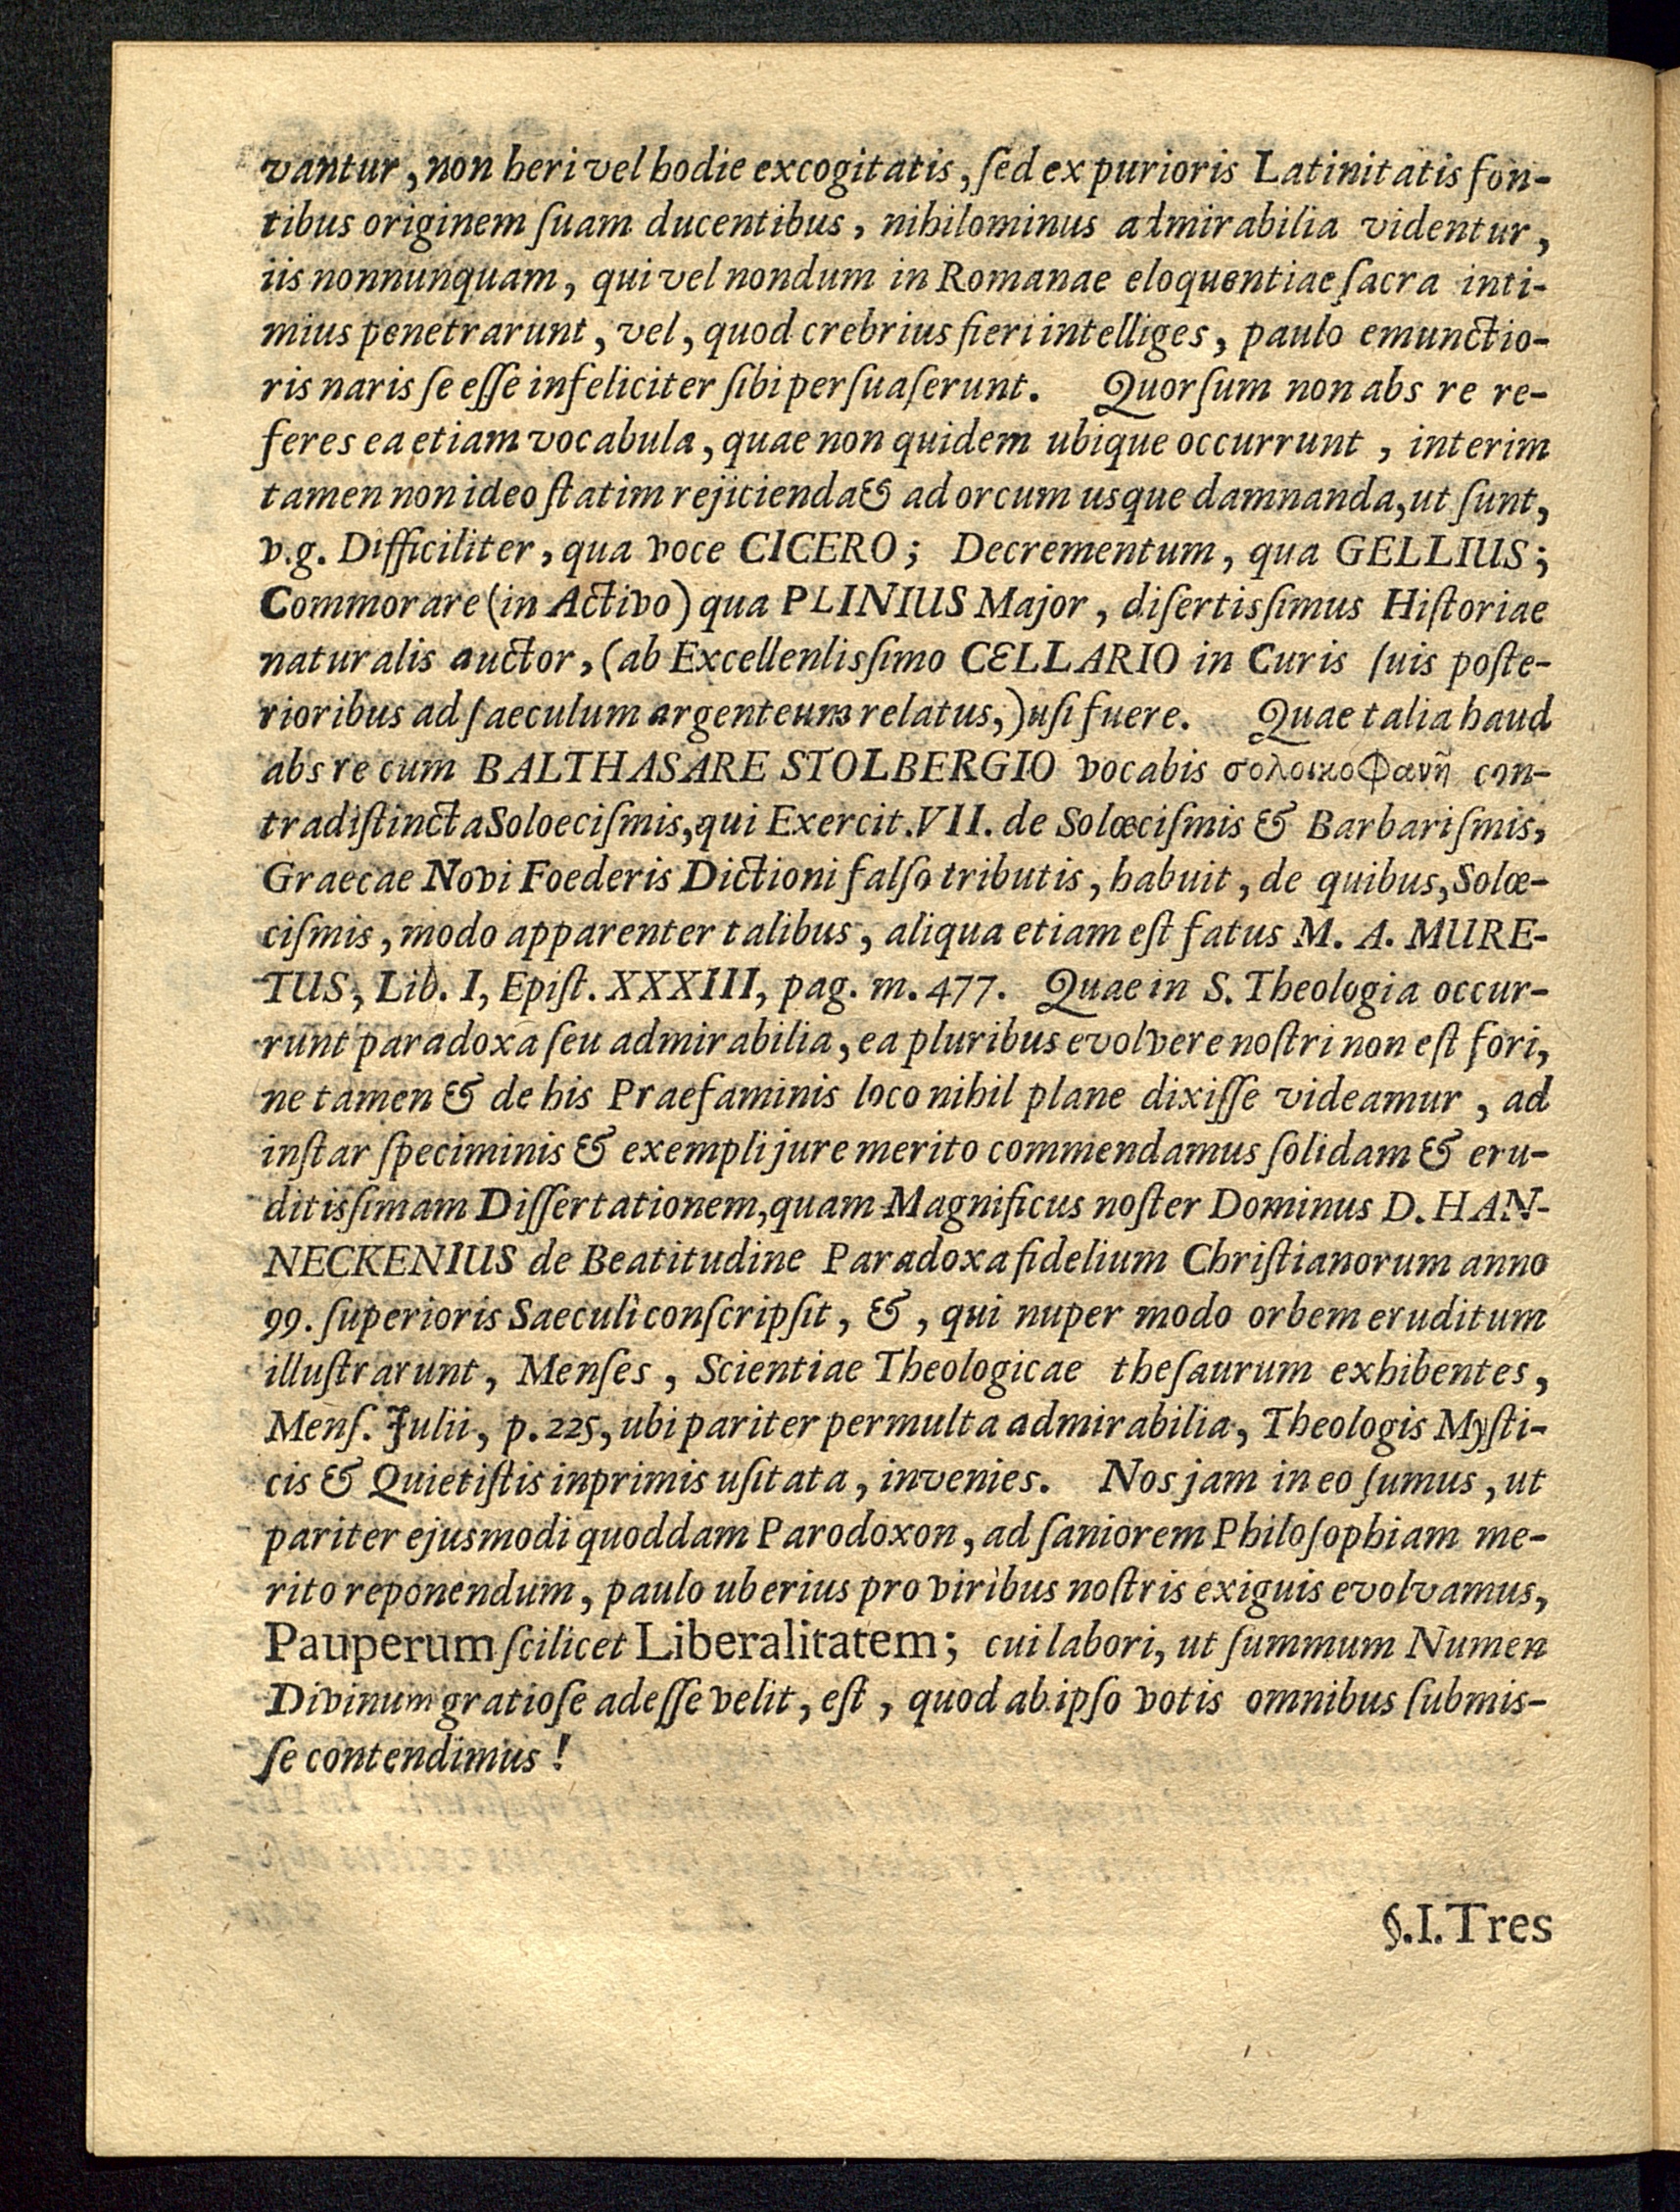 vantur, non heri vel hodie excogitatis, ſed ex purioris Latinitatis fon-
tibus originem ſuam ducentibus, nihilominus admirabilia videntur,
iis nonnunquam, qui vel nondum in Romanae eloquentiae ſacra inti-
mius penetrarunt, vel, quod crebrius fieri intelliges, paulo emunctio-
ris naris ſe eſſe infeliciter ſibi perſuaſerunt. Quorſum non abs re re-
feres ea etiam vocabula, quae non quidem ubique occurrunt, interim
tamen non ideo ſtatim rejicienda & ad orcum usque damnanda, ut ſunt,
v.g. Difficiliter, qua voce CICERO; Decrementum, qua GELLIUS;
Commorare (in Activo) qua PLINIUS Major, diſertisſimus Hiſtoriae
naturalis auctor, (ab Excellenlisſimo CELLARIO in Curis ſuis poſte-
rioribus ad ſaeculum argenteum relatus,) uſi fuere. Quae talia haud
abs re cum BALTHASARE STOLBERGIO vocabis σολοικοφανῆ con-
tradiſtincta Soloeciſmis, qui Exercit. VII. de Solœciſmis & Barbariſmis,
Graecae Novi Foederis Dictioni falſo tributis, habuit, de quibus, Solœ-
ciſmis, modo apparenter talibus, aliqua etiam eſt fatus M. A. MURE-
TUS, Lib. I, Epiſt. XXXIII, pag. m. 477. Quae in S. Theologia occur-
runt paradoxa ſeu admirabilia, ea pluribus evolvere noſtri non eſt fori,
ne tamen & de his Praefaminis loco nihil plane dixiſſe videamur, ad
inſtar ſpeciminis & exempli jure merito commendamus ſolidam & eru-
ditisſimam Diſſertationem, quam Magnificus noſter Dominus D. HAN-
NECKENIUS de Beatitudine Paradoxa fidelium Chriſtianorum anno
99. ſuperioris Saeculi conſcripſit, &, qui nuper modo orbem eruditum
illuſtrarunt, Menſes, Scientiae Theologicae theſaurum exhibentes,
Menſ. Julii, p. 225, ubi pariter permulta admirabilia, Theologis Myſti-
cis & Quietiſtis inprimis uſitata, invenies. Nos jam in eo ſumus, ut
pariter ejusmodi quoddam Parodoxon, ad ſaniorem Philoſophiam me-
rito reponendum, paulo uberius pro viribus noſtris exiguis evolvamus,
Pauperum ſcilicet Liberalitatem; cui labori, ut ſummum Numen
Divinum gratioſe adeſſe velit, eſt, quod ab ipſo votis omnibus ſubmis-
ſe contendimus!
§. I. Tres